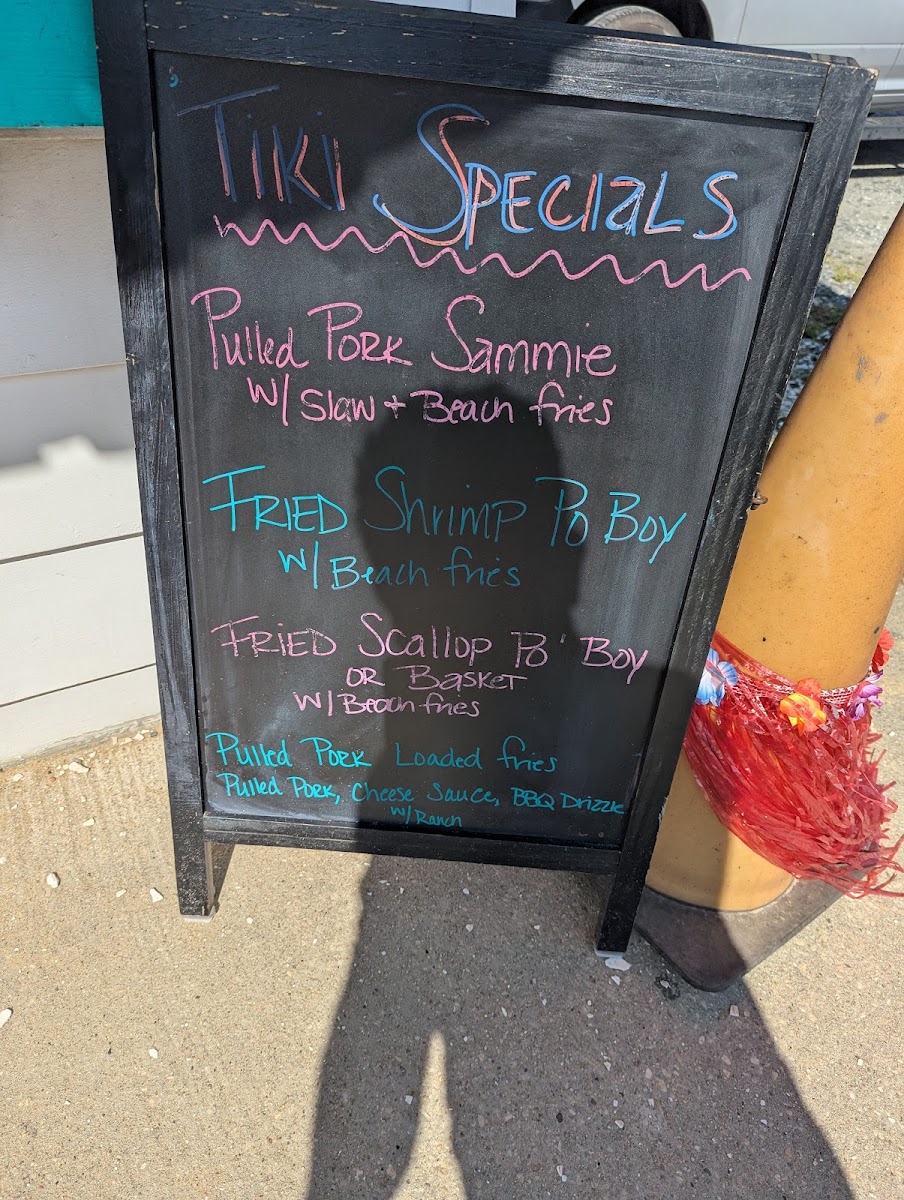 Tiki Specials
Pulled Pork Sammie
w/ Slaw + Beach fries
Fried Shrimp Po Boy
w/ Beach fries
Fried Scallop Po' Boy
or Basket
w/ Beach fries
Pulled Pork Loaded fries
Pulled Pork, Cheese Sauce, BBQ Drizzle
w/ Ranch